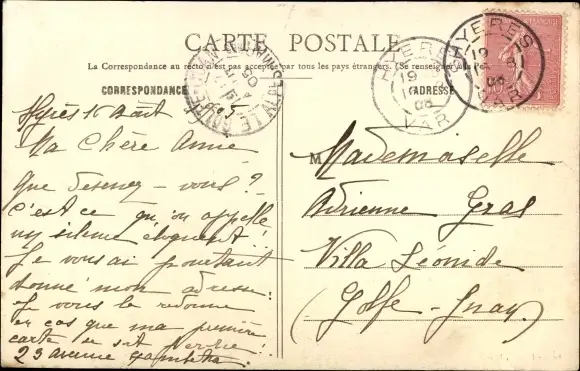 CARTE POSTALE
La Correspondance au recto n'est pas acceptée par tous les pays étrangers. (Se renseigner à la Poste)
CORRESPONDANCE
ADRESSE
HYERES
VAR
HYERES
VAR
GOLFE-JUAN
Hyères 16 Août 1905
Ma Chère Amie
Que devenez-vous?
C'est ce qu'on appelle
un silence éloquent!
Je vous ai pourtant
donné mon adresse:
Je vous la redonne
en cas que ma première
carte se soit perdue
23 avenue Gambetta.
Mademoiselle
Adrienne Gras
Villa Léonide
(Golfe-Juan)